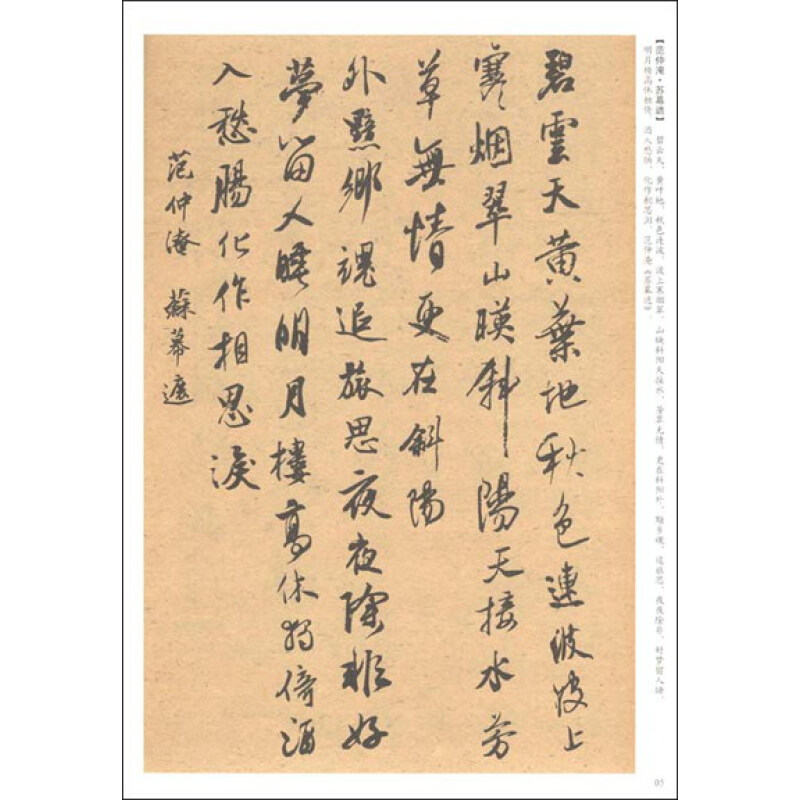 【范仲淹·苏幕遮】 碧云天，黄叶地，秋色连波，波上寒烟翠。山映斜阳天接水，芳草无情，更在斜阳外。黯乡魂，追旅思，夜夜除非，好梦留人睡。
明月楼高休独倚，酒入愁肠，化作相思泪。范仲淹《苏幕遮》。
碧雲天黄葉地秋色連波波上
寒烟翠山暎斜陽天接水芳
草無情更在斜陽
外黯鄉魂追旅思夜夜除非好
夢留人睡明月樓高休独倚酒
入愁腸化作相思淚
范仲淹 蘇幕遮
05